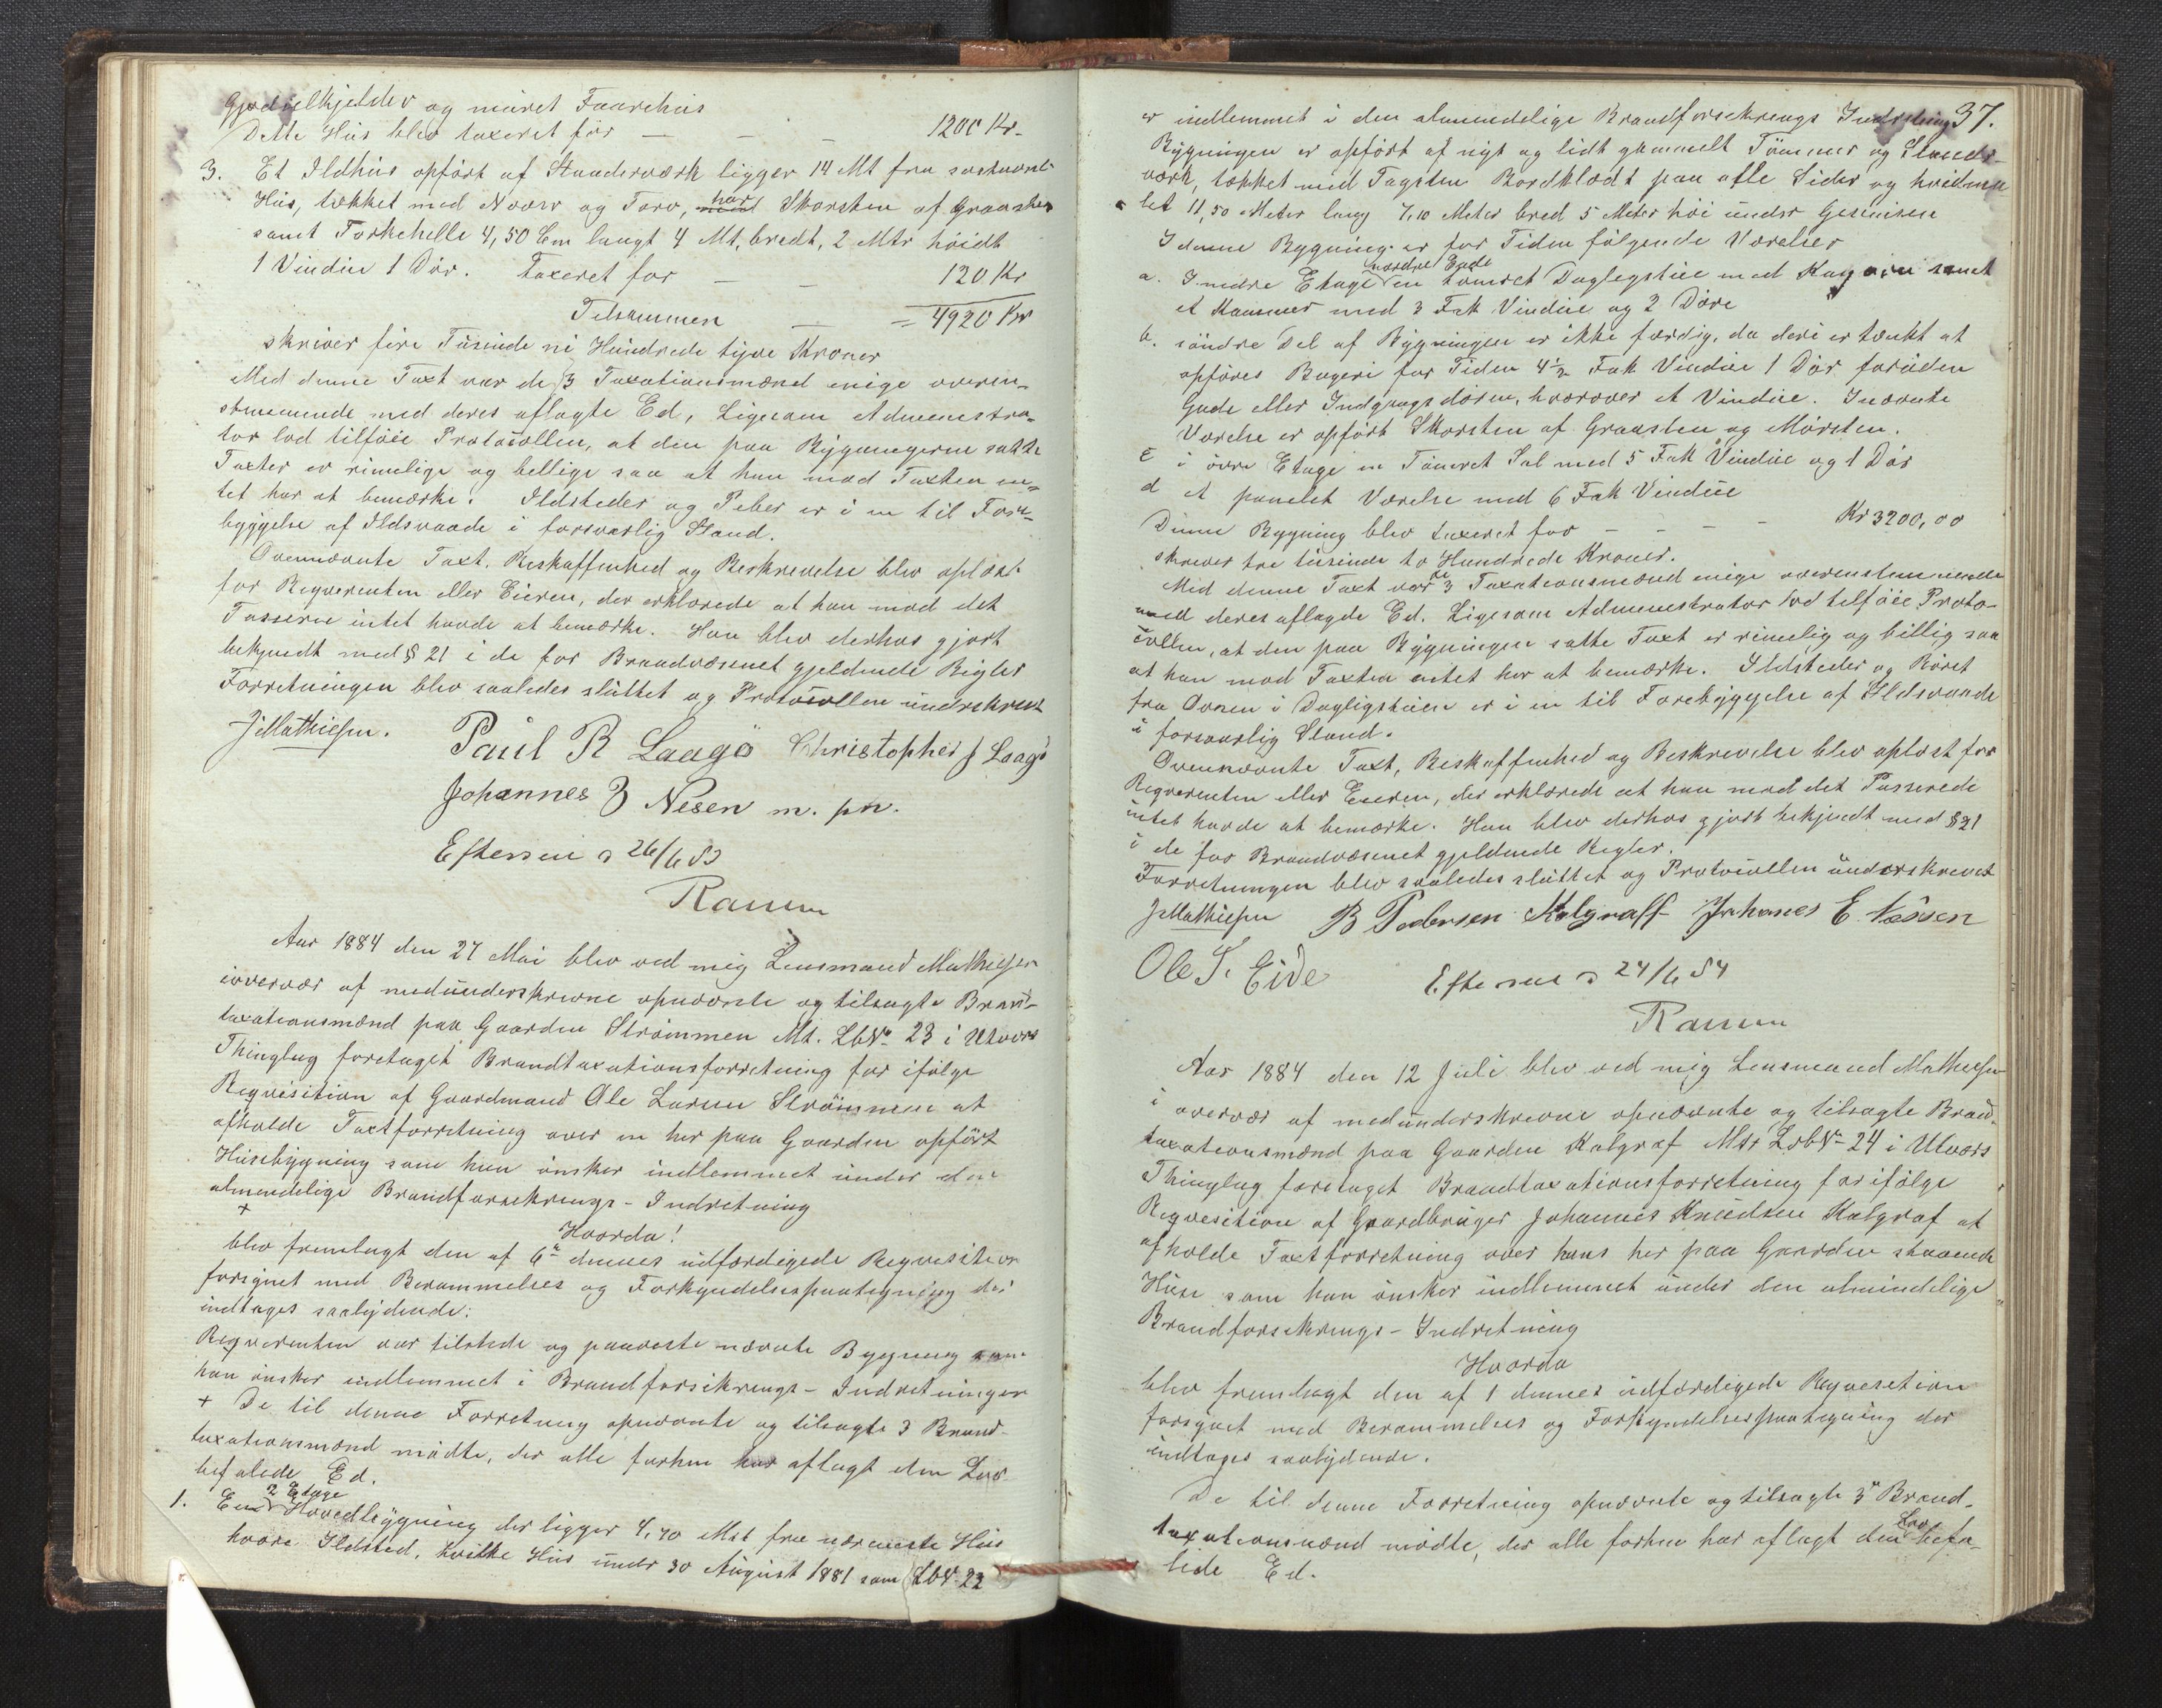 Gjødselkjelder og muret Faarehus
Dette Hus blev taxeret for — — — 1200 Kr.
3. Et Ildhus opført af Standerværk ligger 14 Mt fra sostnævnte
Hus, tækket med Næver og Torv, har Skorsten af Graasten
samt Torkehelle 4,50 Cm langt 4 Mt, bredt, 2 Mtr høidt
1 Vindue 1 Dør. Taxeret for — — 120 Kr
Tilsammen — = 4920 Kr
skriver fire Tusinde ni Hundrede tyve Kroner
Med denne Taxt var de 3 Taxationsmænd enige overen-
stemmende med deres aflagte Ed, Ligesom Administra-
tor lod tilføie Protocollen, at den paa Bygningerne satte
Taxter er rimelige og bellige saa at han mod Taxten in-
tet har at bemærke. Ildsteder og Peber er i en til Fore-
byggelse af Ildsvaade i forsvarlig Stand.
Ovennævnte Taxt, Beskaffenhed og Beskrevelse blev oplæst
for Reqverenten eller Eieren, der erklærede at han mod det
Passerede intet havde at bemærke. Han blev derhos gjort
bekjendt med § 21 i de for Brandvæsenet gjeldende Regler
Forretningen blev saaledes sluttet og Protocollen underskrevet
J Mathiesen. Paul R Laagø Christopher J Laagø
Johannes J Nesen m. p. n.
Efterseet d 26/6 83
Ramm
Aar 1884 den 27 Mai blev ved mig Lensmand Mathiesen
iovervær af medunderskrevne opnævnte og tilsagte Brand-
taxationsmænd paa Gaarden Strømmen Mt. LbNo 23 i Utvær
Thinglag foretaget Brandtaxationsforretning for ifølge
Reqvisition af Gaardmand Ole Larsen Strømmen at
afholde Taxtforretning over en her paa Gaarden opført
Husebygning som han ønsker indlemmet under den
almendelige Brandforsekrengs-Indretning
+ Hvorda!
blev fremlagt den af 6te dennes udfærdigede Reqvisition
forsynet med Berammelses og Forkyndelsespaategning der
indtages saalydende:
Reqverenten var tilstede og paaviste nævnte Bygning som
han ønsker indlemmet i Brandforsikrengs-Indretningen
+ De til denne Forretning opnævnte og tilsagte 3 Brand-
taxationsmænd mødte, der alle forhen har aflagt den Lov-
befalede Ed.
1. En 2 Etage Hovedbygning der ligger 4,70 Met fra nærmeste Hus
hvori Ildsted, hvilke Hus under 30 August 1881 som LbNo 22
37.
er indlemmet i den almendelige Brandforsekrengs Indretning
Bygningen er opført af nyt og lidt gammelt Tømmer og Stander-
værk, tækket med Tagsten Bordklædt paa alle Sider og hvidma-
let 11,50 Meter lang 7,10 Meter bred 5 Meter høi under Gesimsen
I denne Bygning er for Tiden følgende Værelser
a. I nedre Etage nordre Ende en tømret Daglegstue med Kogovn samt
et Kammer med 3 Fak Vindue og 2 Døre
b. søndre Del af Bygningen er ikke færdig, da deri er tænkt at
opføres Bageri for Tiden 4½ Fak Vindue 1 Dør foruden
Gade eller Indgangsdøren, hvorover et Vindue. I nævnte
Værelse er opført Skorsten af Graasten og Mursten.
c i øvre Etage en Tømret Sal med 5 Fak Vindue og 1 Dør
d et panelet Værelse med 6 Fak Vindue
Denne Bygning blev taxeret for — — — — Kr 3200,00
skriver tre tusinde to Hundrede Kroner.
Med denne Taxt var de 3 Taxationsmænd enige overenstemmende
med deres aflagde Ed. Ligesom Administrator lod tilføie Proto-
collen, at den paa Bygningen satte Taxt er rimelig og billig saa
at han mod Taxten intet har at bemærke. Ildsteder og Røret
fra Ovnen i Dagligstuen er i en til Forebyggelse af Ildsvaade
i forsvarlig Stand.
Ovennævnte Taxt, Beskaffenhed og Beskrevelse blev oplæst for
Reqverenten eller Eieren, der erklærede at han mod det Passerede
intet havde at bemærke. Han blev derhos gjort bekjendt med § 21
i de for Brandvæsenet gjeldende Regler.
Forretningen blev saaledes sluttet og Protocollen underskrevet
J Mathiesen B Pedersen Kolgraff Johanes E. Nessen
Ole S. Eide Efterseet d 24/6 84
Ramm
Aar 1884 den 12 Juli blev ved mig Lensmand Mathiesen
i overvær af medunderskrevne opnævnte og tilsagte Brand-
taxationsmænd paa Gaarden Kolgraf Mtr LobNo 24 i Utvær
Thinglag foretaget Brandtaxationsforretning for ifølge
Reqvesition af Gaardbruger Johannes Knudsen Kolgraf at
afholde Taxtforretning over hans her paa Gaarden staaende
Huse som han ønsker indlemmet under den almindelige
Brandforsekrengs-Indretning
Hvorda
blev fremlagt den af 1 dennes udfærdigede Reqvesetion
forsynet med Berammelses og Forkyndelsespaategning der
indtages saalydende.
De til denne Forretning opnævnte og tilsagte 3de Brand-
taxationsmænd mødte, der alle forhen har aflagt den Lov befa-
lede Ed.